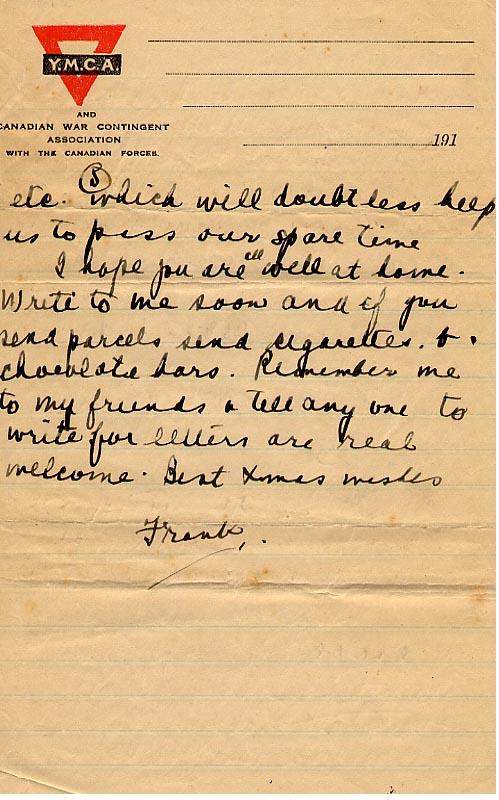 Y.M.C.A.
AND
CANADIAN WAR CONTINGENT
ASSOCIATION
WITH THE CANADIAN FORCES.
191
etc. which will doubtless help
us to pass our spare time
I hope you are all well at home.
Write to me soon and if you
send parcels send cigarettes. &
chocolate bars. Remember me
to my friends & tell any one to
write for letters are real
welcome. Best Xmas wishes
Frank.